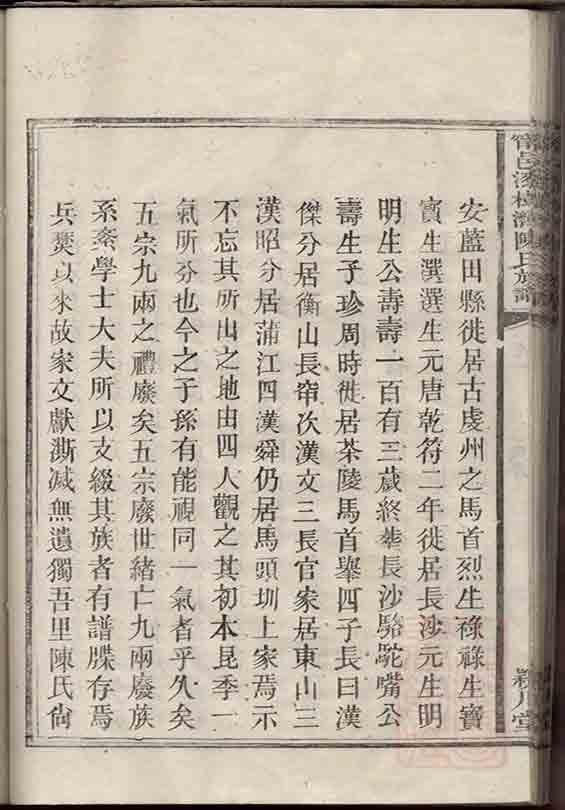 甯邑漆樹灣陳氏族譜
安藍田縣徙居古虔州之馬首烈生祿祿生寶
寶生潩選生元唐乾符二年徙居長沙元生明
明生公壽壽一百有三歲終塟長沙駱駝嘴公
壽生子珍周時徙居茶陵馬首舉四子長曰漢
傑分居衡山長帘次漢文三長官家居東山三
漢昭分居蒲江四漢舜仍居馬頭圳上家焉示
不忘其所出之地由四人觀之其初本昆季一
氣所分也今之子孫有能視同一氣者乎久矣
五宗九兩之禮廢矣五宗廢世緒亡九兩廢族
系紊學士大夫所以支綴其族者有譜牒存焉
兵燹以來故家文獻澌滅無遺獨吾里陳氏尙
潁川堂